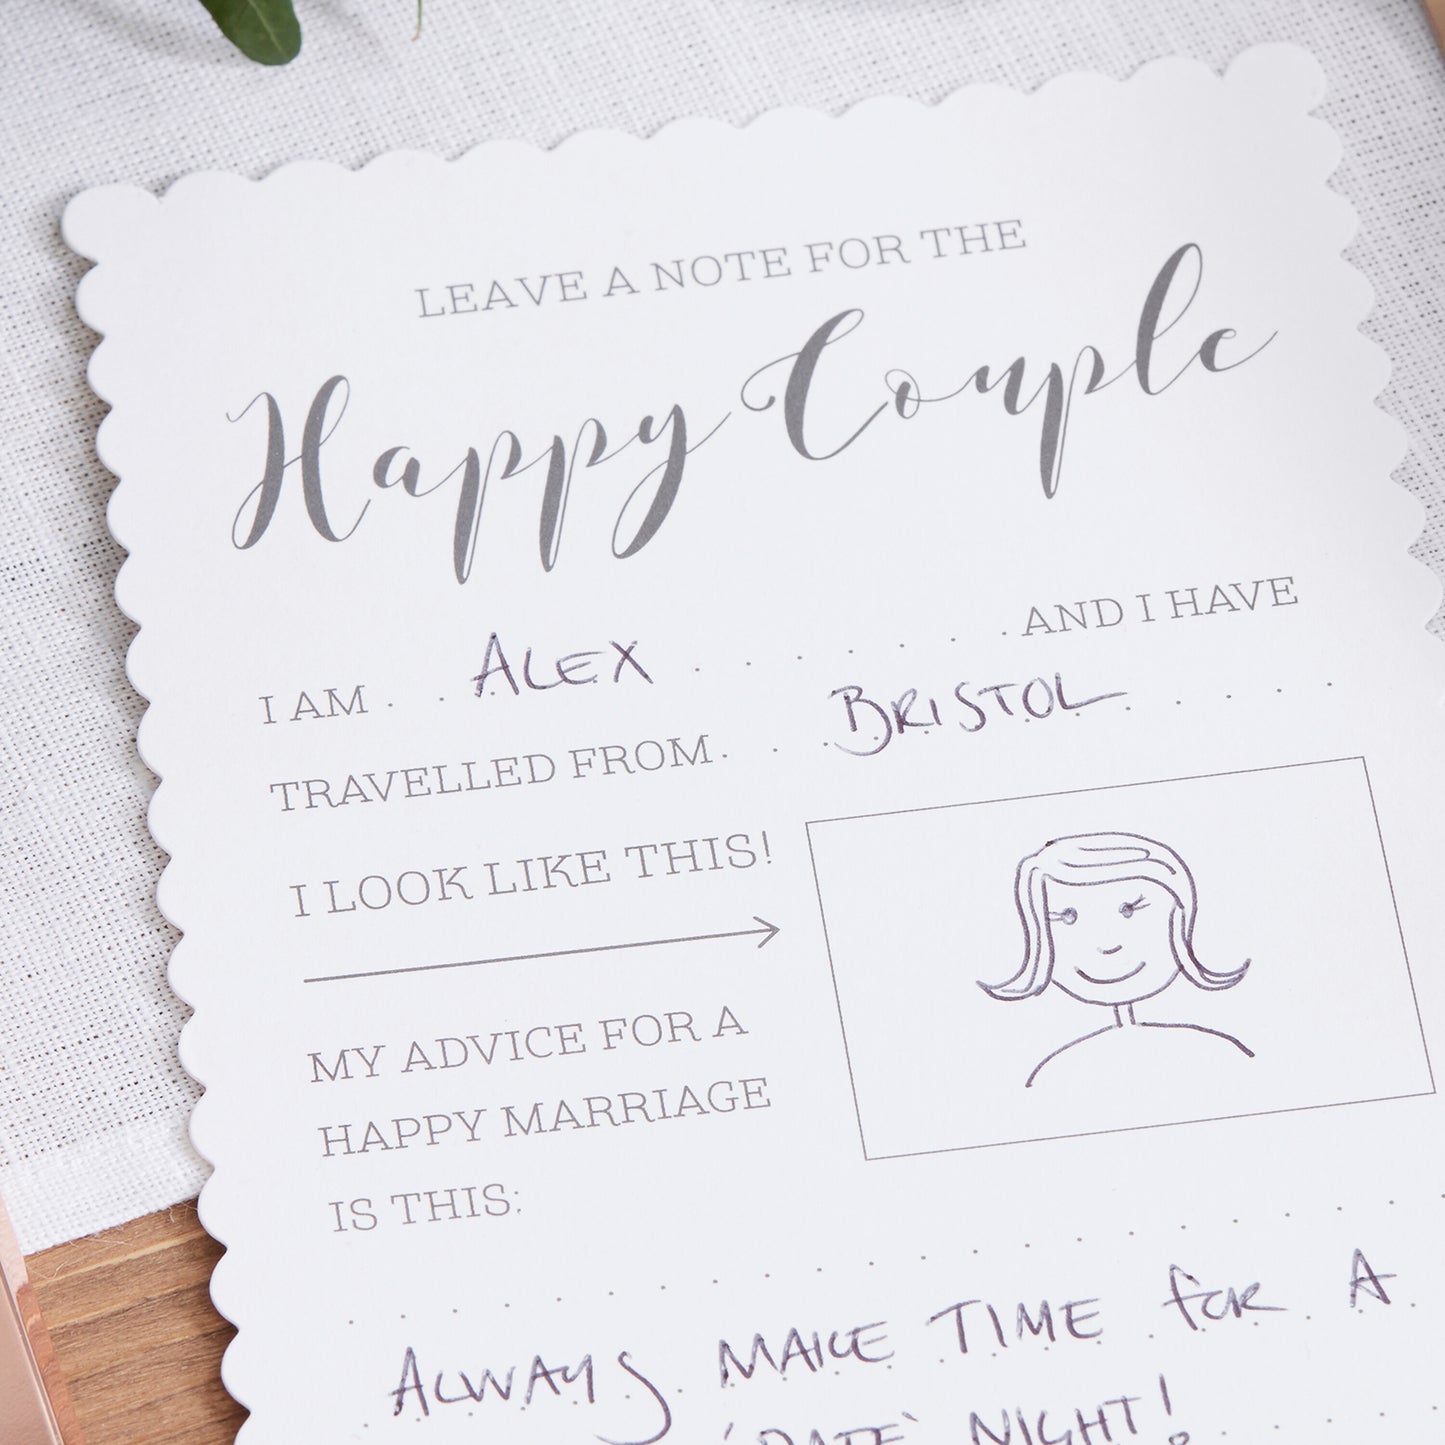 LEAVE A NOTE FOR THE
Happy Couple
I AM . . ALEX . . . . . . . AND I HAVE
TRAVELLED FROM. . . BRISTOL . . . . .
I LOOK LIKE THIS!
MY ADVICE FOR A
HAPPY MARRIAGE
IS THIS:
ALWAYS MAKE TIME FOR A
'DATE' NIGHT!